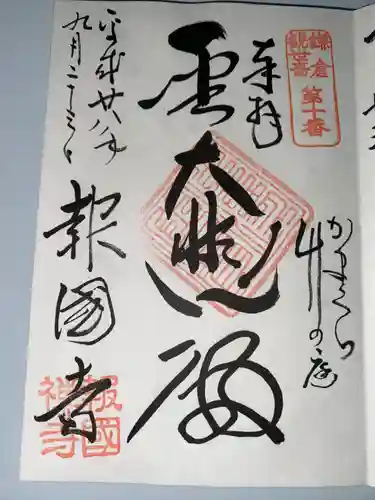 鎌倉
観音
第十番
奉拝
かまくら
竹の庭
大悲
殿
平成廿八年
九月二十三日
報國寺
報國
禅寺